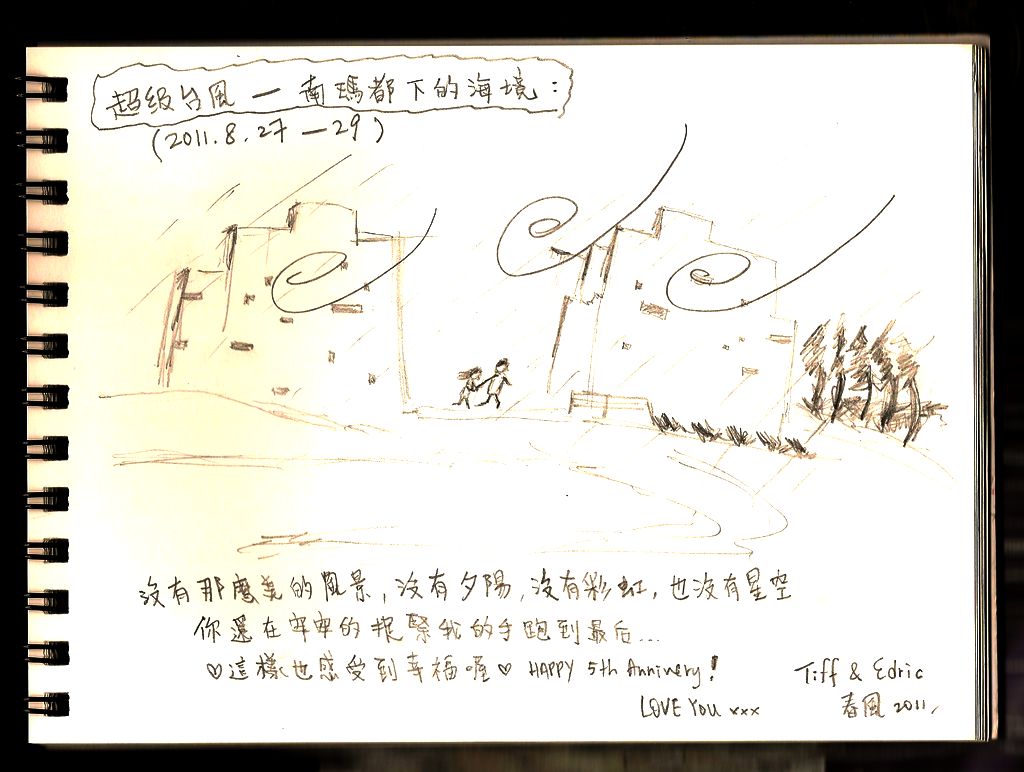 超级台風 — 南瑪都下的海境:
(2011.8.27 — 29)
沒有那麼美的風景, 沒有夕陽, 沒有彩虹, 也沒有星空
你還在牢牢的抓緊我的手跑到最后...
♡這樣也感受到幸福喔♡ HAPPY 5th Annivery!
Tiff & Edric
LOVE YOU xxx
春風 2011,